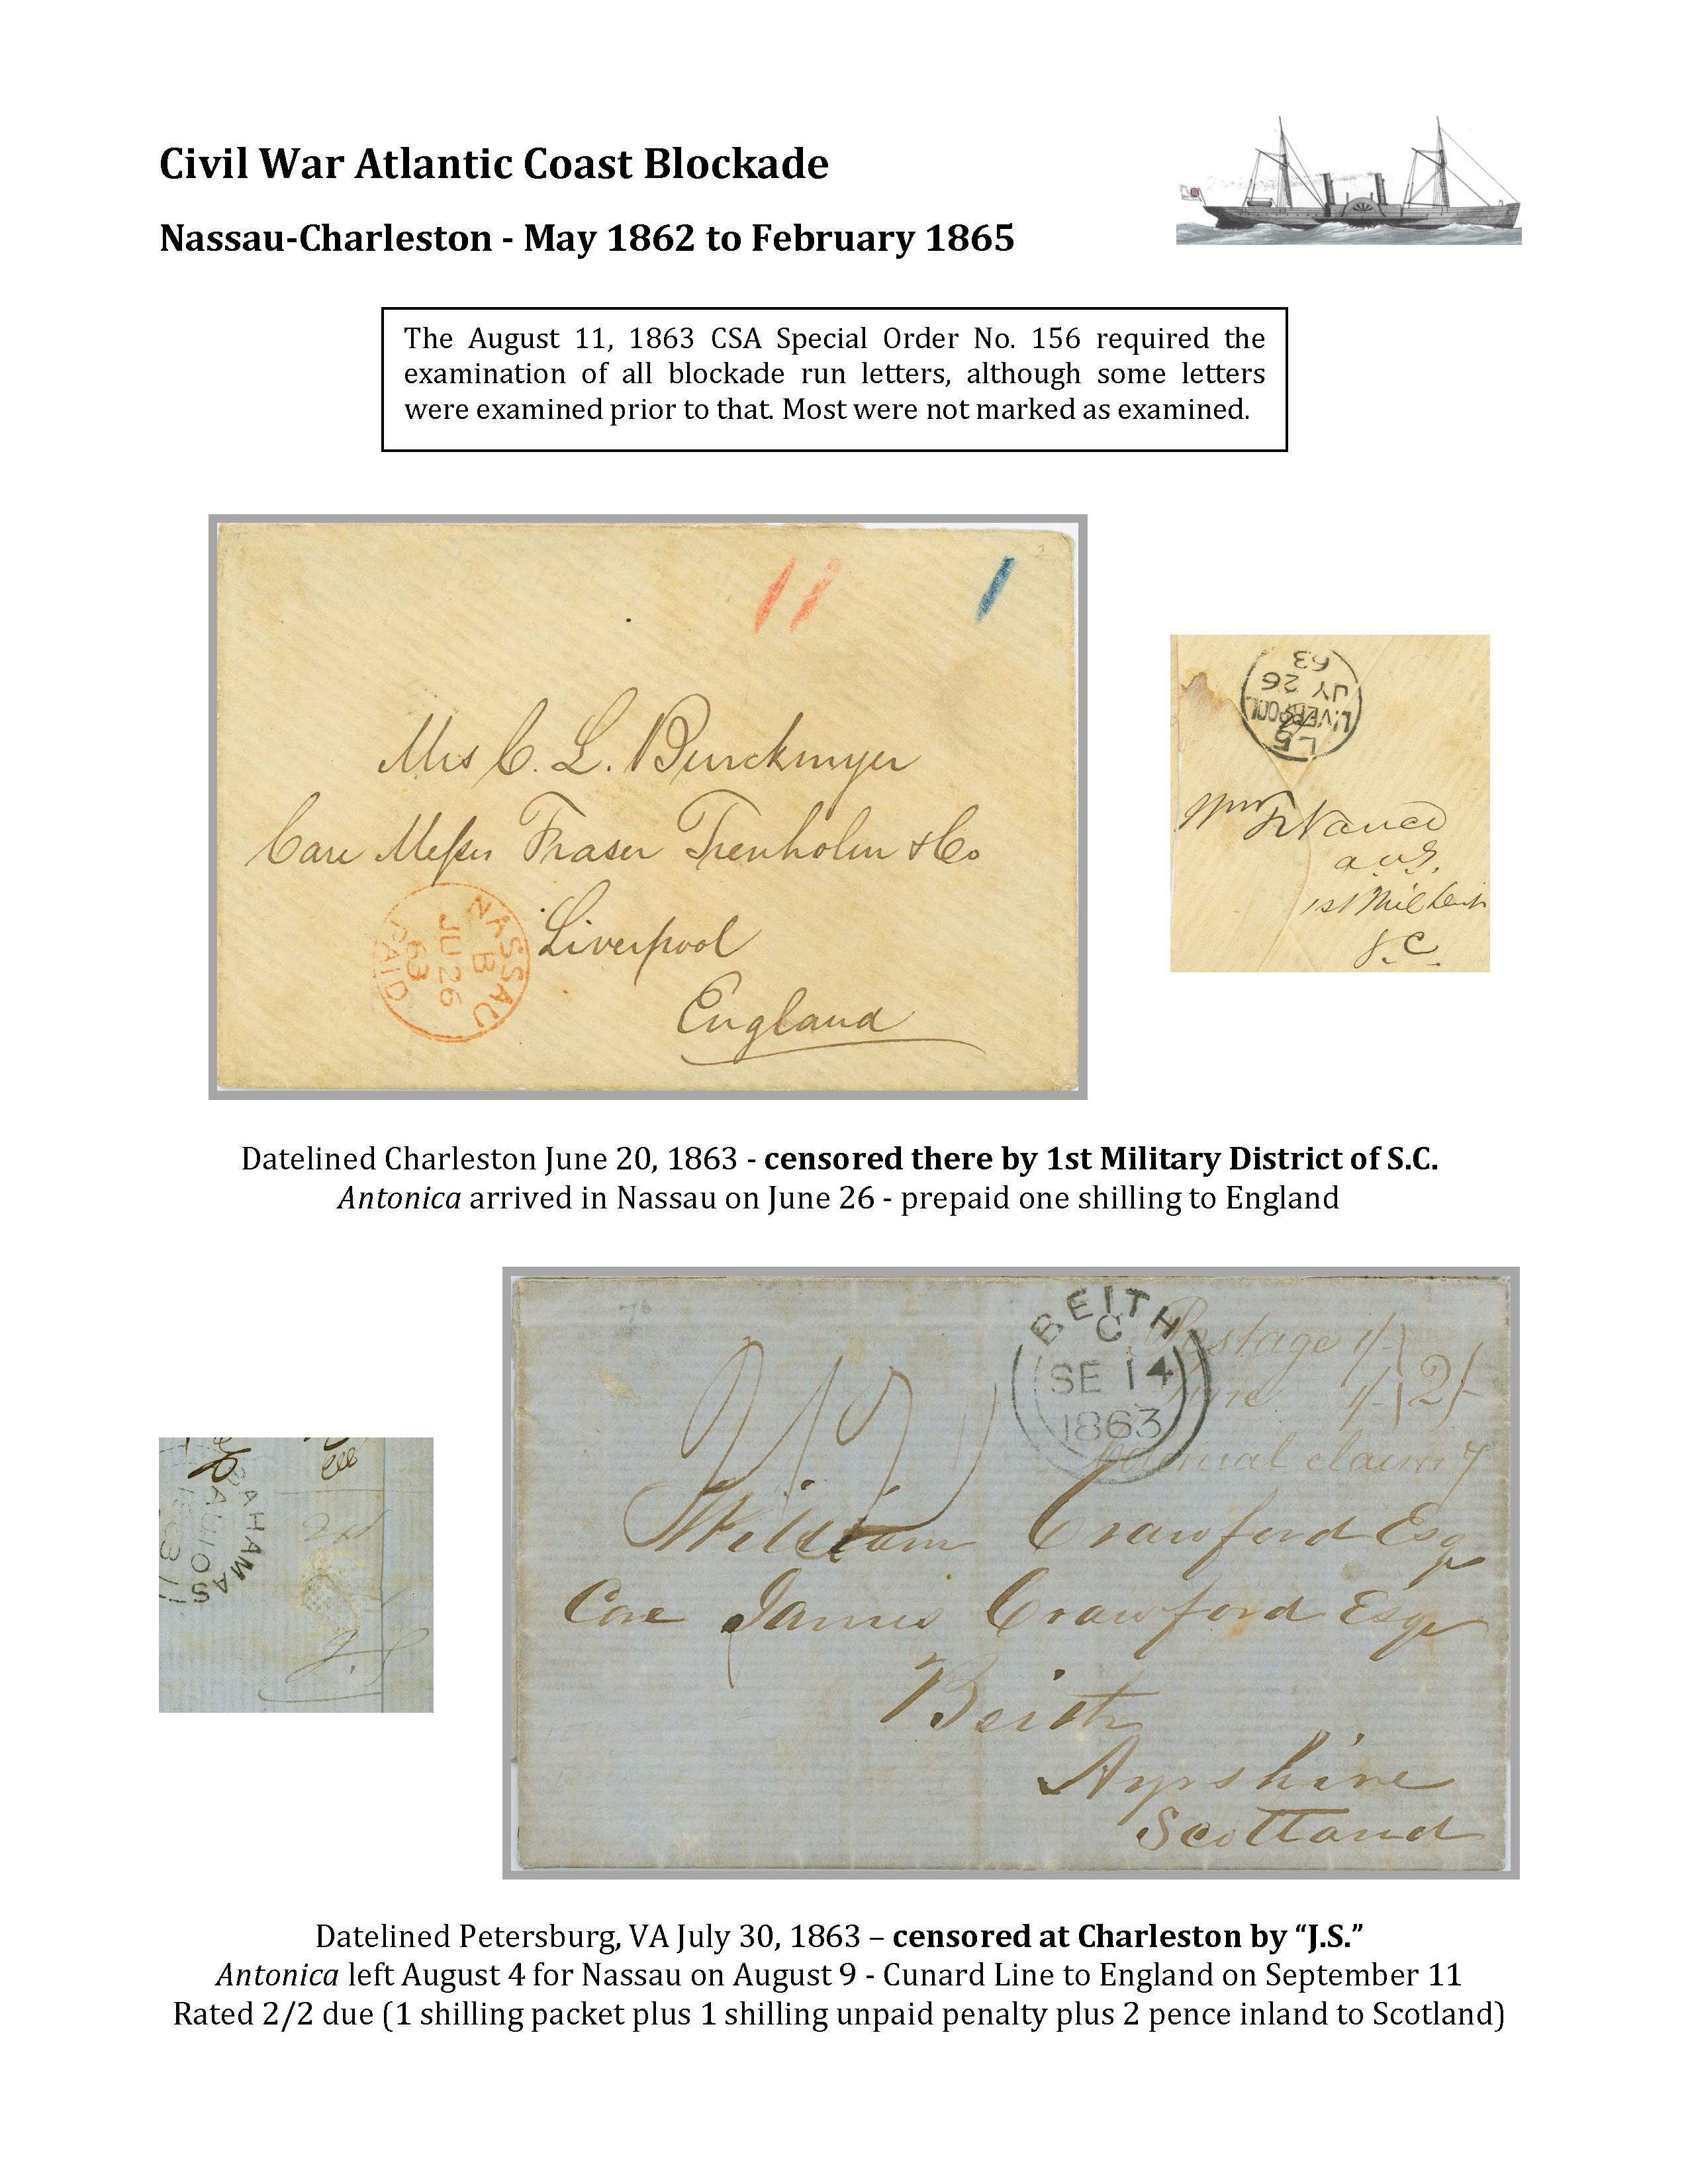 Civil War Atlantic Coast Blockade
Nassau-Charleston - May 1862 to February 1865
The August 11, 1863 CSA Special Order No. 156 required the
examination of all blockade run letters, although some letters
were examined prior to that. Most were not marked as examined.
11 1
Mrs C. L. Burckmyer
Care Messrs Fraser Trenholm & Co
Liverpool
England
NASSAU
B
JU 26
63
PAID
L5
LIVERPOOL
JY 26
63
Wm
a.a.g.
1st Mil
S.C.
Datelined Charleston June 20, 1863 - censored there by 1st Military District of S.C.
Antonica arrived in Nassau on June 26 - prepaid one shilling to England
BEITH
C
SE 14
1863
Postage 1/-
1/- 2/-
claim
2/2
William Crawford Esq
Care James Crawford Esqr
Beith
Ayrshire
Scotland
BAHAMAS
AU 10
J.S
Datelined Petersburg, VA July 30, 1863 – censored at Charleston by “J.S.”
Antonica left August 4 for Nassau on August 9 - Cunard Line to England on September 11
Rated 2/2 due (1 shilling packet plus 1 shilling unpaid penalty plus 2 pence inland to Scotland)